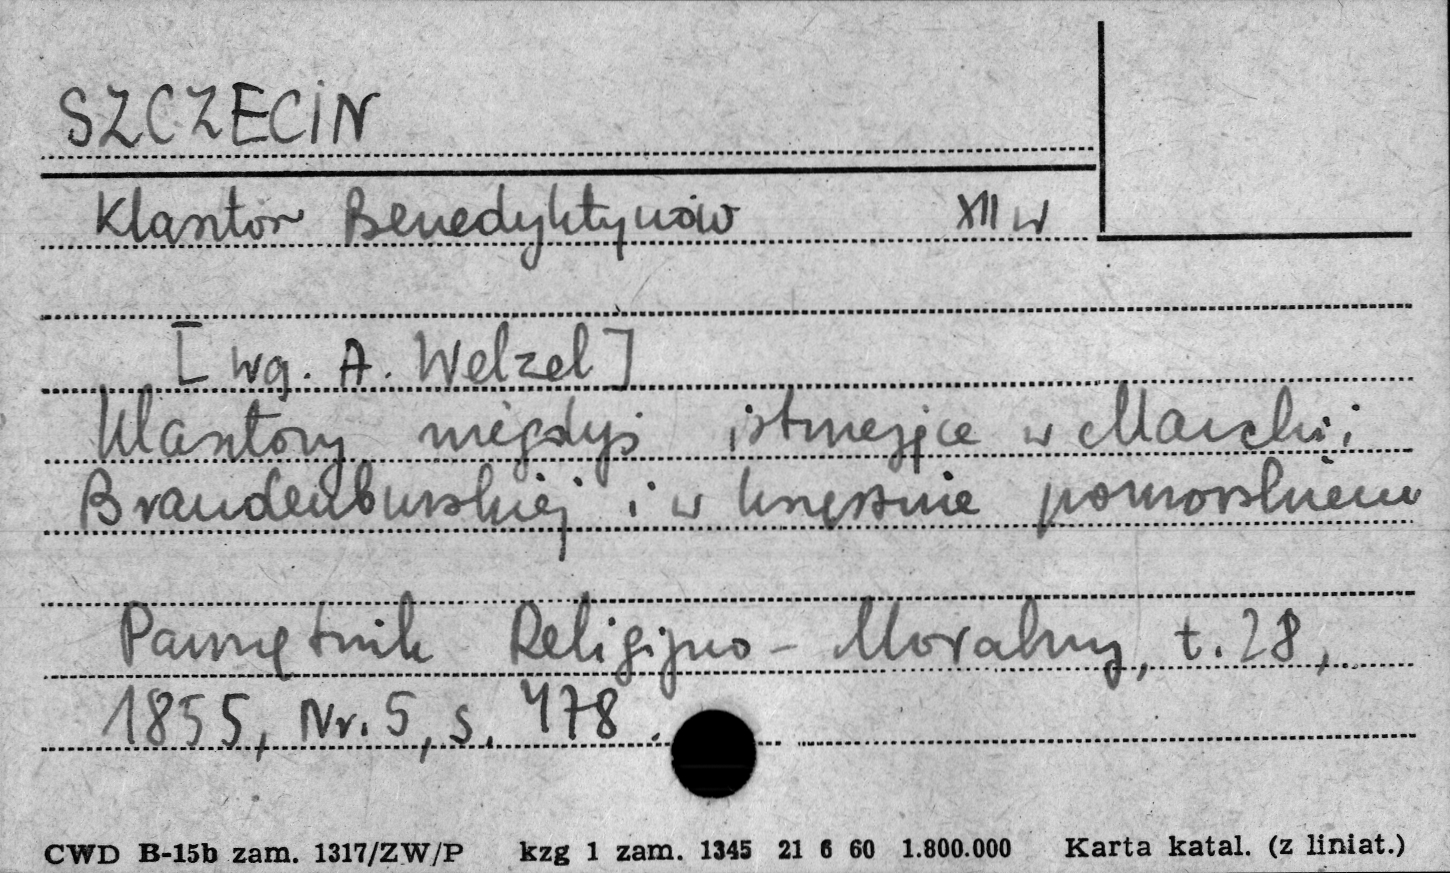 SZCZECIN
Klasztor Benedyktynów XII w
[wg. A. Welzel]
Klasztory niegdyś istniejące w Marchii
Brandenburskiej i w księstwie pomorskiem
Pamiętnik Religijno-Moralny, t. 28,
1855, Nr. 5, s. 478.
CWD B-15b zam. 1317/ZW/P kzg 1 zam. 1345 21 6 60 1.800.000 Karta katal. (z liniat.)